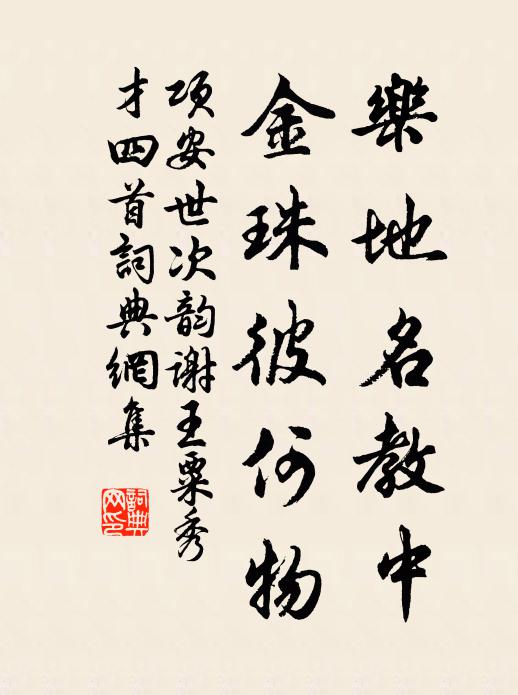 樂地名教中
金珠彼何物
項安世次韵謝王粟秀
才四首詞典網集
詞典
网印